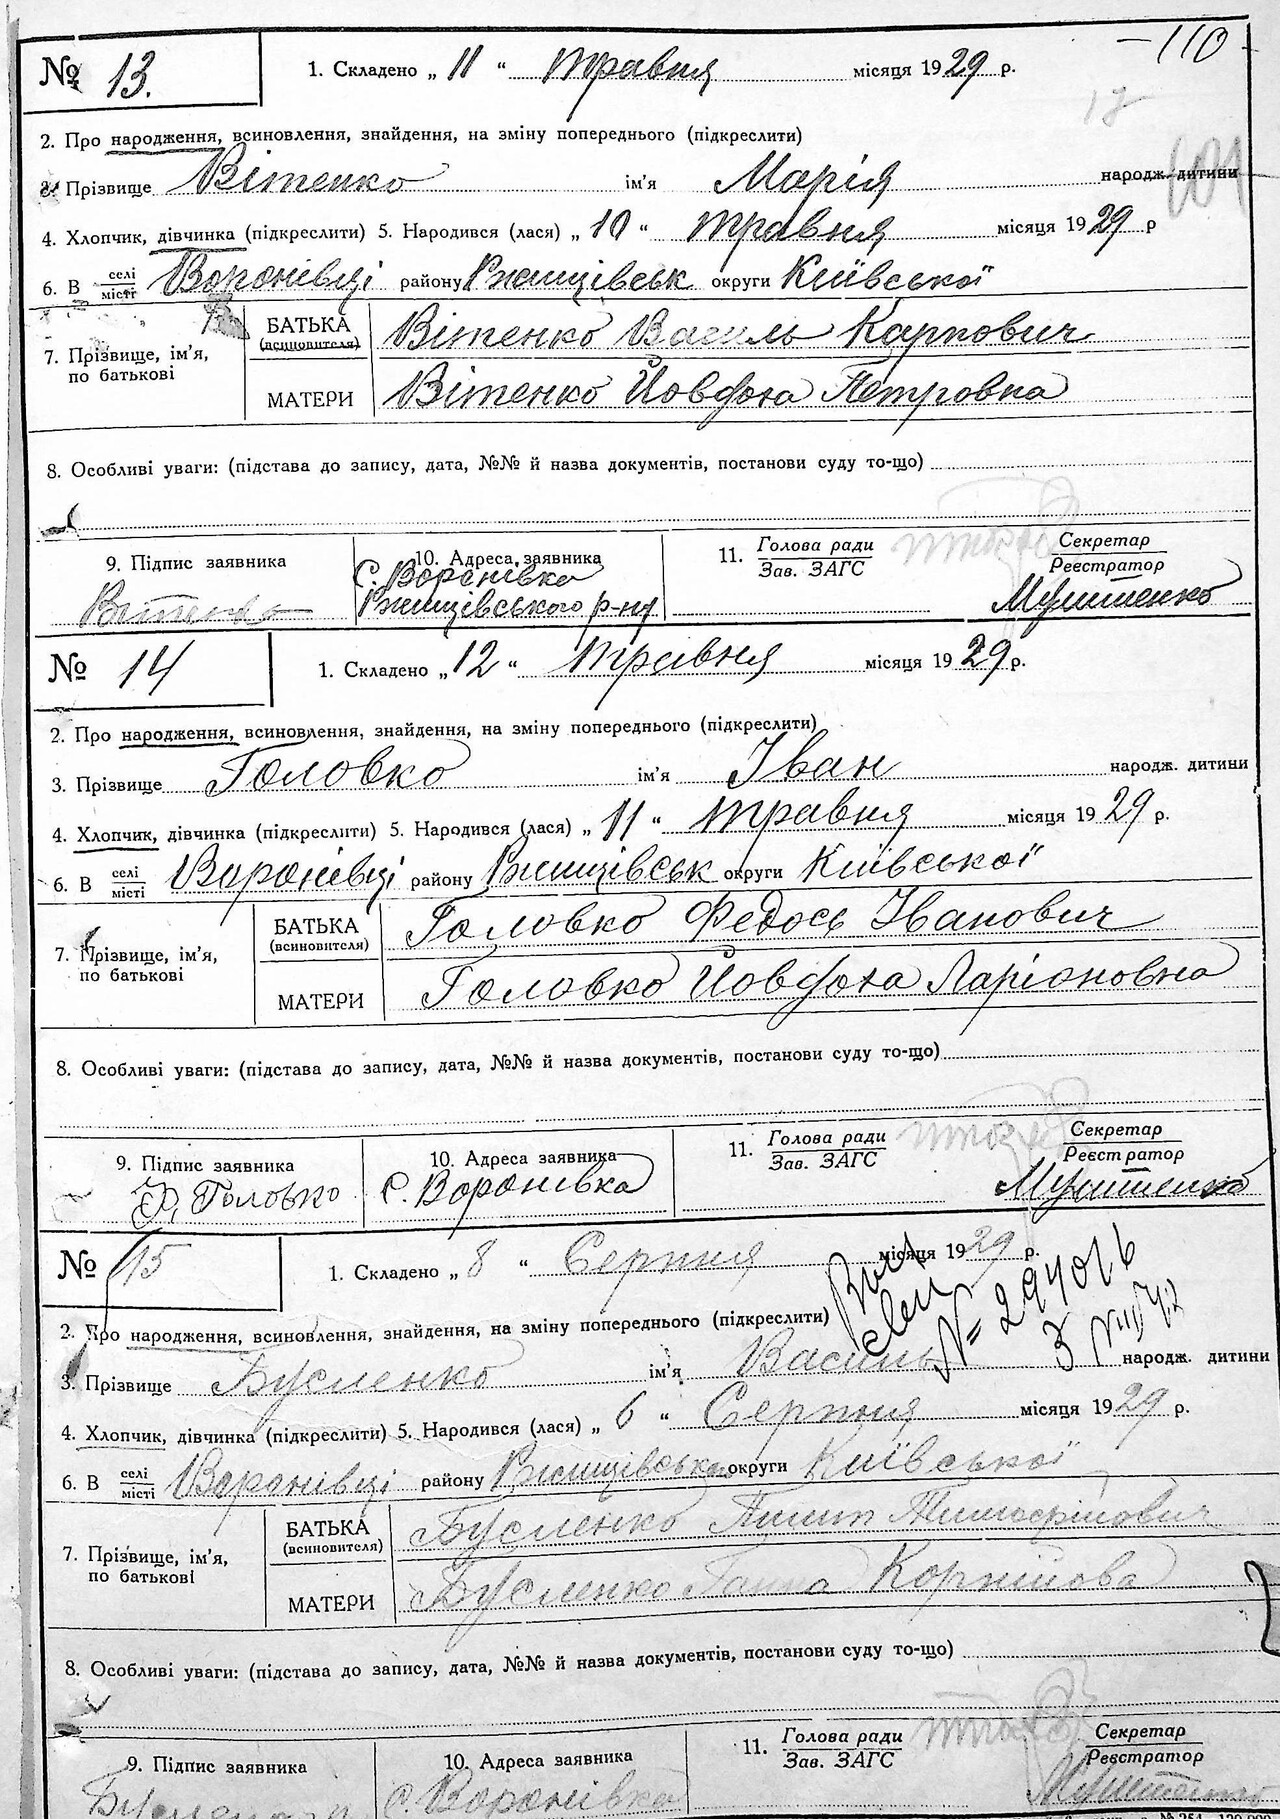 – 110 –
№ 13. 1. Складено „ 11 “ травня місяця 1929 р.
2. Про народження, всиновлення, знайдення, на зміну попереднього (підкреслити)
3. Прізвище Вітенко ім'я Марія народж. дитини
4. Хлопчик, дівчинка (підкреслити) 5. Народився (лася) „ 10 “ травня місяця 1929 р
6. В селі місті Воронівці району Ржищівськ округи Київської
7. Прізвище, ім'я, по батькові
БАТЬКА (всиновителя) Вітенко Василь Карпович
МАТЕРИ Вітенко Йовдоха Петровна
8. Особливі уваги: (підстава до запису, дата, №№ й назва документів, постанови суду то-що)
9. Підпис заявника Вітенко
10. Адреса заявника с. Воронівка Ржищівського р-ну
11. Голова ради Зав. ЗАГС
Секретар Реєстратор
№ 14 1. Складено „ 12 “ травня місяця 1929 р.
2. Про народження, всиновлення, знайдення, на зміну попереднього (підкреслити)
3. Прізвище Головко ім'я Іван народж. дитини
4. Хлопчик, дівчинка (підкреслити) 5. Народився (лася) „ 11 “ травня місяця 1929 р.
6. В селі місті Воронівці району Ржищівськ округи Київської
7. Прізвище, ім'я, по батькові
БАТЬКА (всиновителя) Головко Федось Іванович
МАТЕРИ Головко Йовдоха Ларіоновна
8. Особливі уваги: (підстава до запису, дата, №№ й назва документів, постанови суду то-що)
9. Підпис заявника Ф. Головко
10. Адреса заявника с. Воронівка
11. Голова ради Зав. ЗАГС
Секретар Реєстратор
№ 15 1. Складено „ 8 “ Серпня місяця 1929 р.
№ 294016
2. Про народження, всиновлення, знайдення, на зміну попереднього (підкреслити)
3. Прізвище Бусленко ім'я Василь народж. дитини
4. Хлопчик, дівчинка (підкреслити) 5. Народився (лася) „ 6 “ Серпня місяця 1929 р.
6. В селі місті Воронівці району Ржищівська округи Київської
7. Прізвище, ім'я, по батькові
БАТЬКА (всиновителя) Бусленко Пилип Тимофійович
МАТЕРИ Бусленко Ганна Корнійова
8. Особливі уваги: (підстава до запису, дата, №№ й назва документів, постанови суду то-що)
9. Підпис заявника
10. Адреса заявника с. Воронівка
11. Голова ради Зав. ЗАГС
Секретар Реєстратор